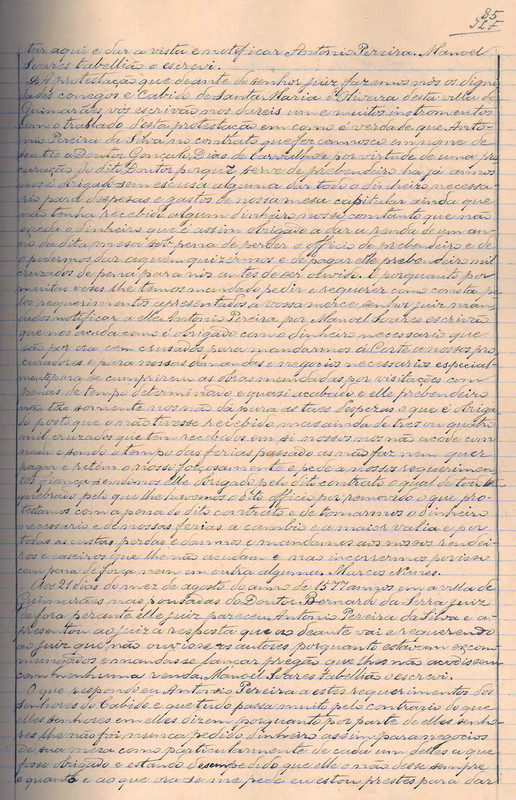 85
tar aqui e dar a vista e notificar Antonio Pereira. Manoel
Soares tabellião o escrevi.
A protestação que deante do senhor juiz fazemos nós os digni-
dades conegos e Cabido de Santa Maria d'Oliveira desta villa de
Guimarães, vós escrivão nos dareis um e muitos instromentos
com o trallado d'esta protestação em como é verdade que Anto-
nio Pereira da Silva no contrato que fez comnosco em nome de
seu tio o Doutor Gonçalo Dias de Carvalho e por virtude de uma pro-
curação do dito Doutor porque serve de prebendeiro ha já annos
nos é obrigado sem escusa alguma dar todo o dinheiro necessa-
rio para despesas e gastos de nossa mesa capitular ainda que
não tenha recebido algum dinheiro nosso comtanto que não
exceda o dinheiro que é assim obrigado a dar a renda de um an-
no da dita mesa sob pena de perder o officio de prebendeiro e de
o podermos dar a quem quizermos e de pagar elle prebendeiro mil
cruzados de pena para nós antes de ser ouvido. E porquanto por
muitas vezes lhe temos mandado pedir e requerer como consta pe-
los requerimentos apresentados a vossa mercê senhor juiz man-
dou notificar a elle Antonio Pereira por Manoel Soares escrivão
que nos acuda como é obrigado com o dinheiro necessario que
são por ora cem crusados para mandarmos á Corte a nossos pro-
curadores e para nossas demandas e negocios necessarios especial-
mente para se cumprirem as obras mandadas por visitações com
penas de tempo determinado e quasi acabado e elle prebendeiro
não tão somente nos não dá para as taes despezas o que é obriga-
do posto que o não tivesse recebido mas ainda de tres ou quatro
mil cruzados que tem recebidos em si nossos nos não acode com
nada e sendo o tempo das ferias passado as não faz nem quer
pagar e retem o nosso forçosamente e pede a nossos requerimen-
tos fiança sendo-nos elle obrigado pelo dito contrato o qual de todo tem
quebrado pelo que lhe havemos o dito officio por removido o que pro-
testamos com a pena do dito contrato e de tomarmos o dinheiro
necessario e de nossas ferias a cambio e a maior valia e por
todas as custas perdas e damnos e mandamos aos nossos rendei-
ros e caseiros que lhe não acudam e nas incorrermos por isso
com pena de força nem em outra alguma. Marcos Nunes.
Aos 21 dias do mez de agosto do anno de 1577 annos em a villa de
Guimarães nas pousadas do Doutor Bernardo da Serra juiz
de fora perante elle juiz pareceu Antonio Pereira da Silva e a-
presentou ao juiz a resposta que ao deante vai e requerendo
ao juiz que não ouvisse os autores porquanto estavam excom-
mungados e mandasse lançar pregão que lhes não acudissem
com nenhuma renda. Manoel Soares tabellião o escrevi.
O que respondo eu Antonio Pereira a estes requerimentos dos
senhores do Cabido é que tudo passa muito pelo contrario do que
elles senhores em elles dizem porquanto por parte de elles senho-
res lhe não foi nunca pedido dinheiro assim para negocios
de sua mesa como particularmente de cada um delles a que
fosse obrigado e estando desempedido que elle o não desse sempre
e quanto é ao que ora se me pede eu estou prestes para dar